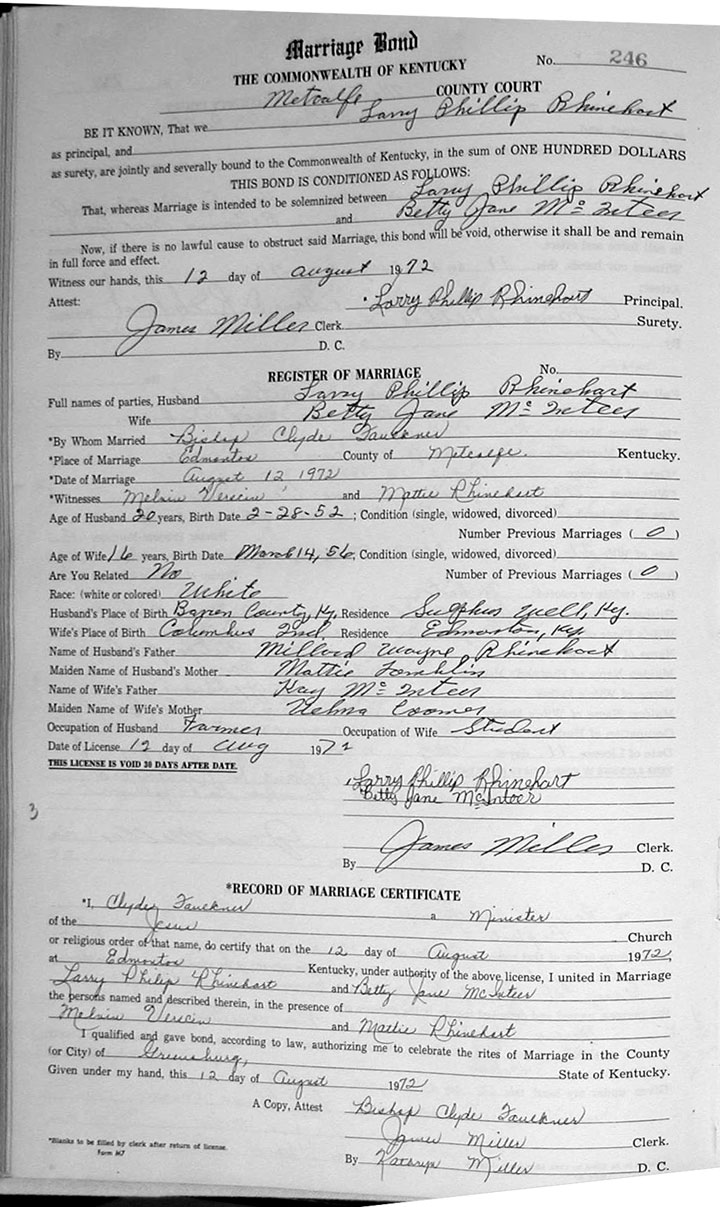 Marriage Bond
No. 246
THE COMMONWEALTH OF KENTUCKY
Metcalfe COUNTY COURT
BE IT KNOWN, That we Larry Phillip Rhinehart
as principal, and
as surety, are jointly and severally bound to the Commonwealth of Kentucky, in the sum of ONE HUNDRED DOLLARS
THIS BOND IS CONDITIONED AS FOLLOWS:
That, whereas Marriage is intended to be solemnized between Larry Phillip Rhinehart
and Betty Jane McInteer
Now, if there is no lawful cause to obstruct said Marriage, this bond will be void, otherwise it shall be and remain
in full force and effect.
Witness our hands, this 12 day of august 1972
Attest: Larry Phillip Rhinehart Principal.
James Miller Clerk Surety.
By D. C.
REGISTER OF MARRIAGE No.
Full names of parties, Husband Larry Phillip Rhinehart
Wife Betty Jane McInteer
*By Whom Married Bishop Clyde Faukner
*Place of Marriage Edmonton County of Metcalfe. Kentucky.
*Date of Marriage August 12 1972
*Witnesses Melvin and Mattie Rhinehart
Age of Husband 20 years, Birth Date 2-28-52; Condition (single, widowed, divorced)
Number Previous Marriages ( 0 )
Age of Wife 16 years, Birth Date March 14, 56; Condition (single, widowed, divorced)
Are You Related No Number of Previous Marriages ( 0 )
Race: (white or colored) White
Husband's Place of Birth Barren County, Ky. Residence Sulphur Well, Ky.
Wife's Place of Birth Columbus Ind. Residence Edmonton, Ky.
Name of Husband's Father Millard Wayne Rhinehart
Maiden Name of Husband's Mother Mattie Tomblin
Name of Wife's Father Kay McInteer
Maiden Name of Wife's Mother Velma Coomer
Occupation of Husband Farmer Occupation of Wife Student
Date of License 12 day of Aug 1972
THIS LICENSE IS VOID 30 DAYS AFTER DATE.
Larry Phillip Rhinehart
Betty Jane McInteer
3
James Miller Clerk.
By D. C.
*RECORD OF MARRIAGE CERTIFICATE
*I, Clyde Faukner a Minister
of the Jesus Church
or religious order of that name, do certify that on the 12 day of August 1972,
at Edmonton Kentucky, under authority of the above license, I united in Marriage
Larry Philip Rhinehart and Betty Jane McInteer
the persons named and described therein, in the presence of
Melvin and Mattie Rhinehart
I qualified and gave bond, according to law, authorizing me to celebrate the rites of Marriage in the County
(or City) of Greensburg, State of Kentucky.
Given under my hand, this 12 day of August 1972
A Copy, Attest Bishop Clyde Faukner
James Miller Clerk.
*Blanks to be filled by clerk after return of license.
Form M7
By Kathryn Miller D. C.